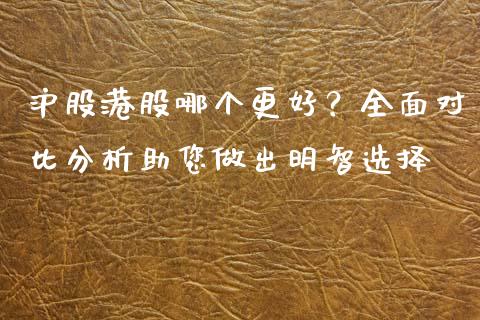 沪股港股哪个更好？全面对
比分析助您做出明智选择